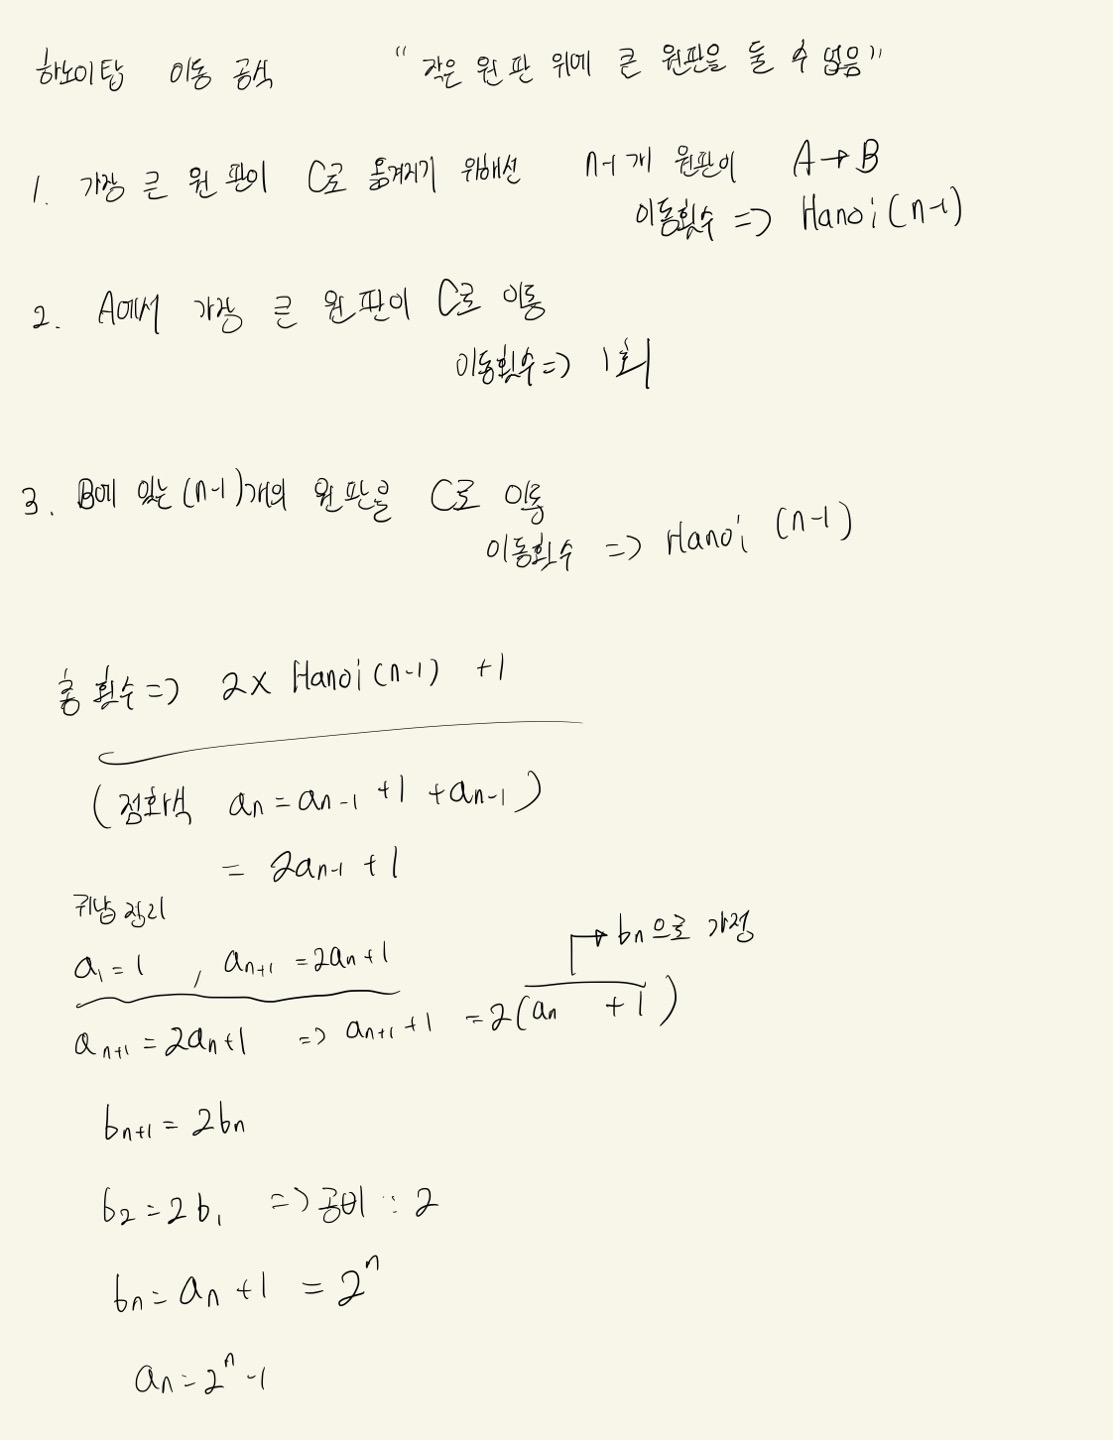 하노이탑 이동 공식 “작은 원 판 위에 큰 원판을 둘 수 없음”
1. 가장 큰 원 판이 C로 옮겨지기 위해선 n-1개 원판이 A→B
이동횟수 => Hanoi(n-1)
2. A에서 가장 큰 원 판이 C로 이동
이동횟수=> 1회
3. B에 있는 (n-1)개의 원 판을 C로 이동
이동횟수 => Hanoi (n-1)
총 횟수=> 2x Hanoi(n-1) +1
(점화식 an = an-1 +1 +an-1)
= 2an-1 +1
귀납 정리
a1 = 1 , an+1 = 2an+1
→ bn으로 가정
an+1 = 2an+1 => an+1 +1 = 2(an +1)
bn+1 = 2bn
b2 = 2b1 => 공비 : 2
bn = an +1 = 2^n
an = 2^n -1